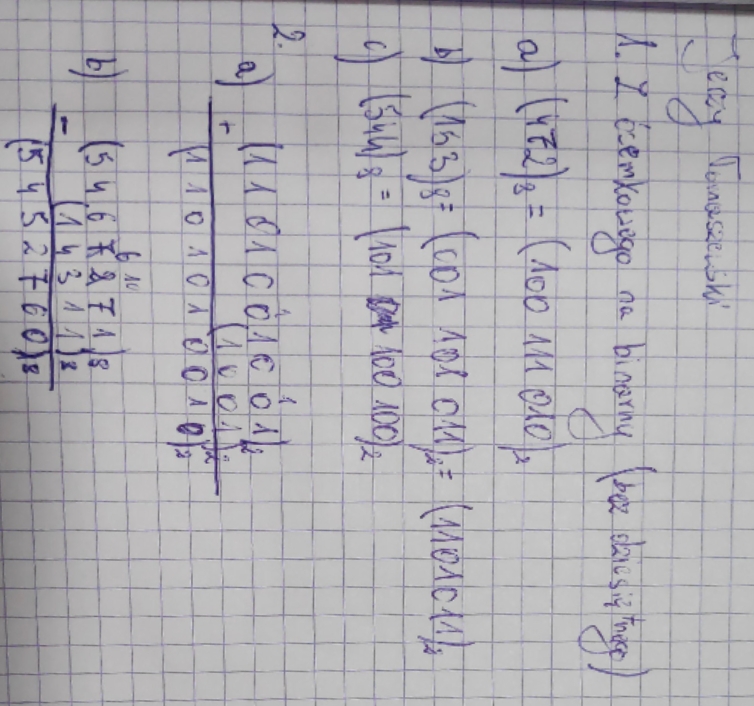 Jerzy Tomaszewski
1. Z ósemkowego na binarny (bez dziesiętnego)
a) (472)8 = (100 111 010)2
b) (153)8 = (001 101 011)2 = (1101011)2
c) (544)8 = (101 100 100)2
2.
1 1
a) (1101001001)2
+ (1001)2
(11010100010)2
6 10
b) (5467271)8
- (14311)8
(5452760)8